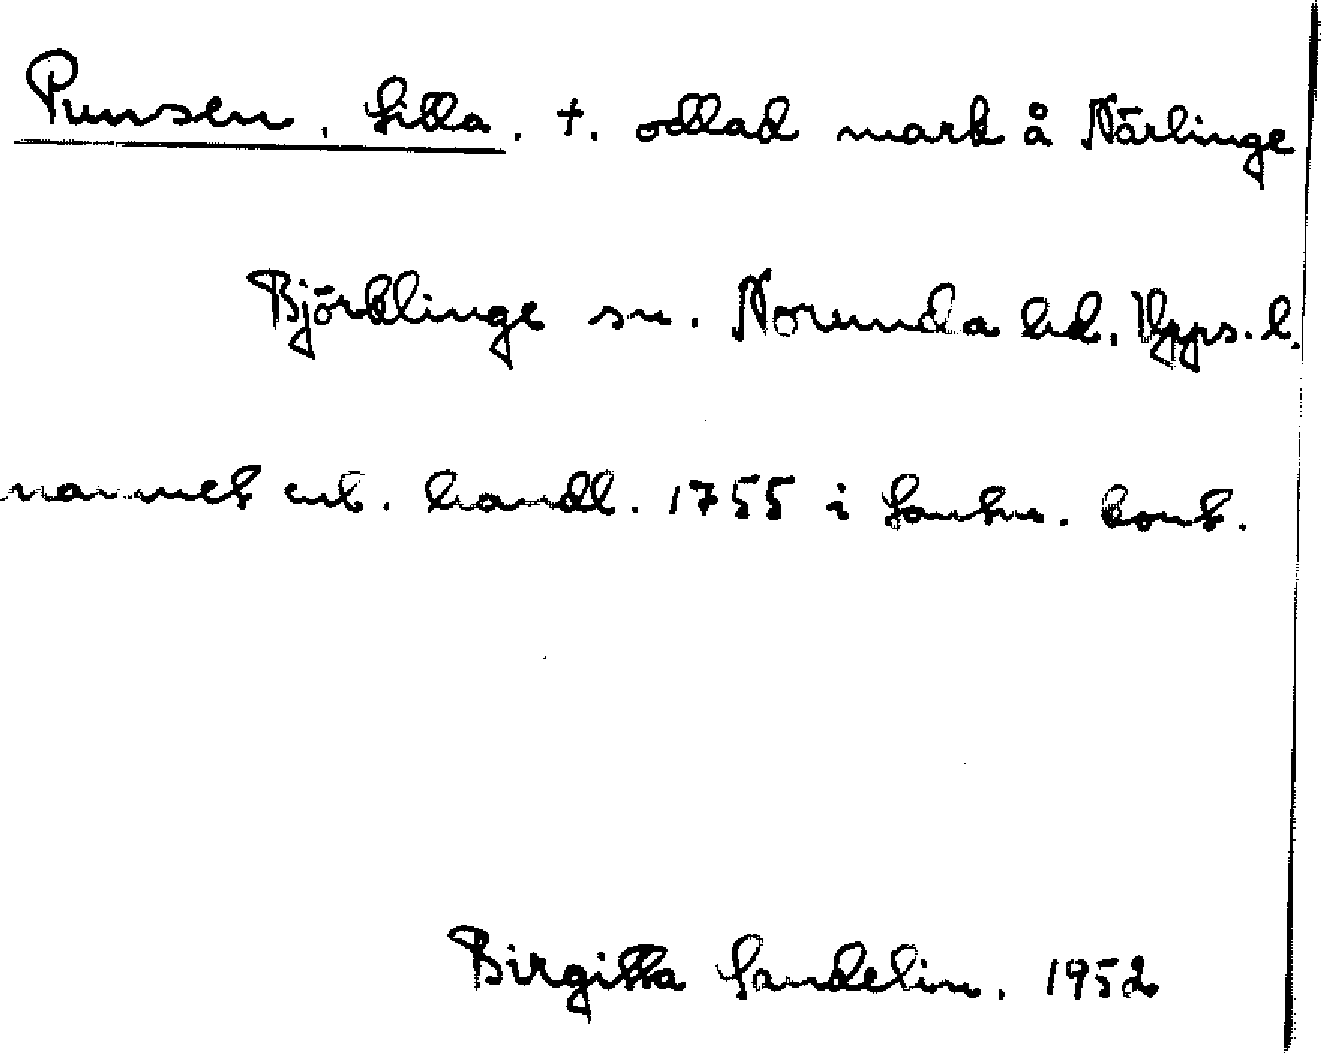 Punsen, Lilla. †. odlad mark å Närlinge
Björklinge sn. Norunda hd. Upps. l.
namnet enl. handl. 1755 i Lantm. kont.
Birgitta Sandelin. 1952